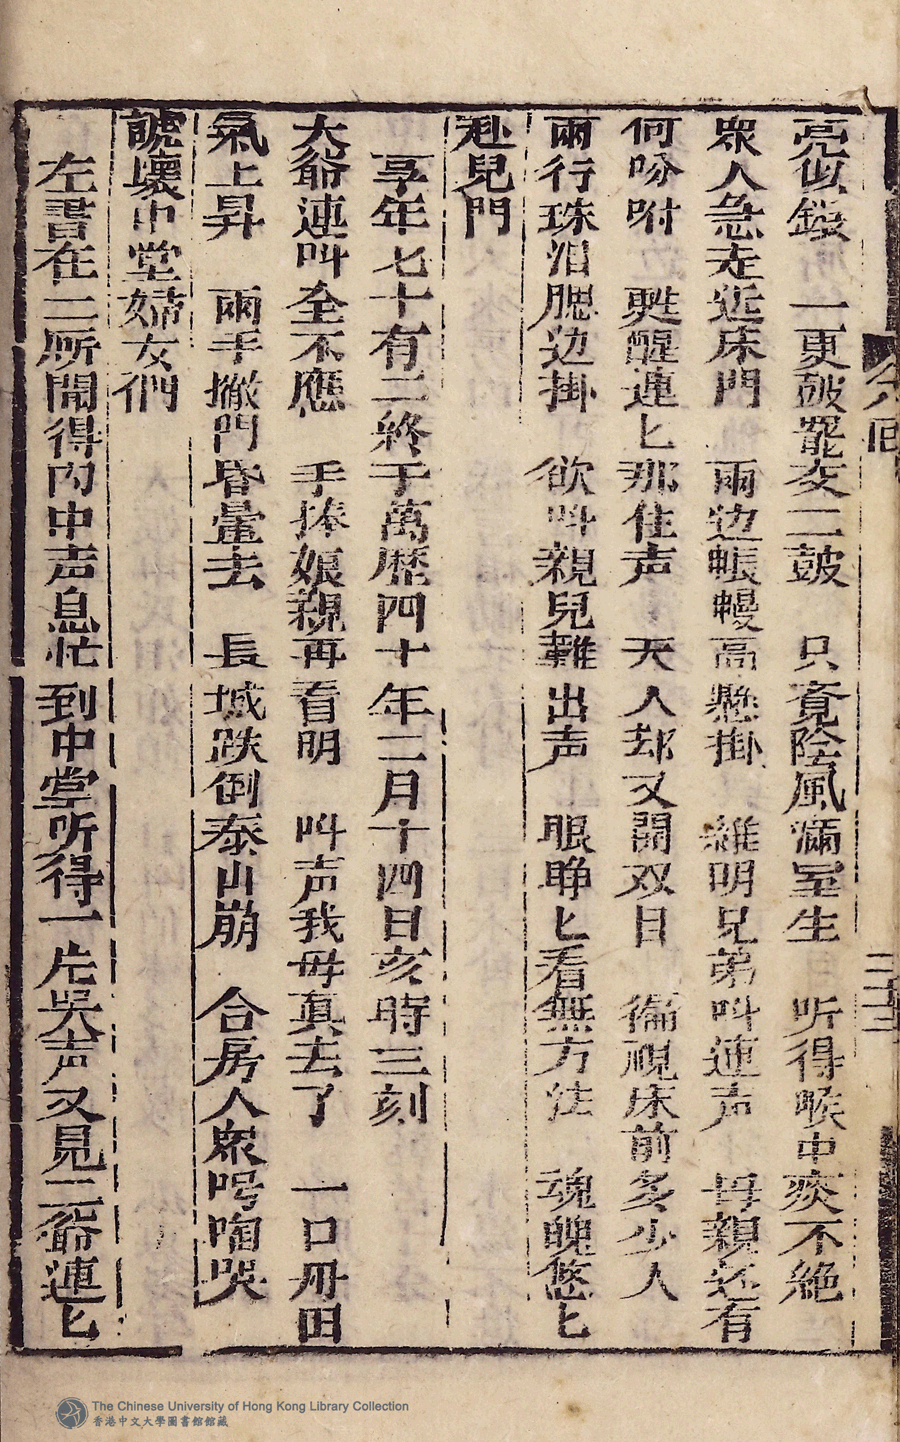 亮似鏡　一更皷罷交二鼓　只覔陰風滿室生　听得喉中痰不絕
衆人急走近床門　兩边帳幔高懸掛　維明兄弟叫連声　母親还有
何吩咐　甦醒連匕那住声　夭人却又開双目　徧視床前多少人
兩行珠泪腮边掛　欲叫親兒難出声　眼睁匕看無方法　魂魄悠匕
赴兒門
享年七十有二終于萬歷四十年二月十四日亥時三刻
大爺連叫全不應　手捧娘親再看明　叫声我毋真去了　一口丹田
氣上昇　兩手撤門昏暈去　長城跌倒泰山崩　合房人衆呺啕哭
諕壞中堂婦女們
左書在二所聞得内中声息忙到中堂听得一片哭声又見二爺連匕
三十三
The Chinese University of Hong Kong Library Collection
香港中文大學圖書館館藏